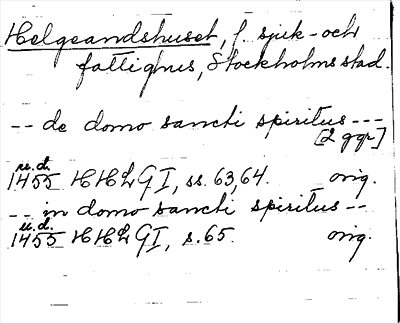 Helgeandshuset, f. sjuk- och
fattighus, Stockholms stad.
-- de domo sancti spiritus ---
[2 ggr]
u.d.
1455 HHLG I, ss. 63, 64. orig.
-- in domo sancti spiritus --
u.d.
1455 HHLG I, s. 65. orig.